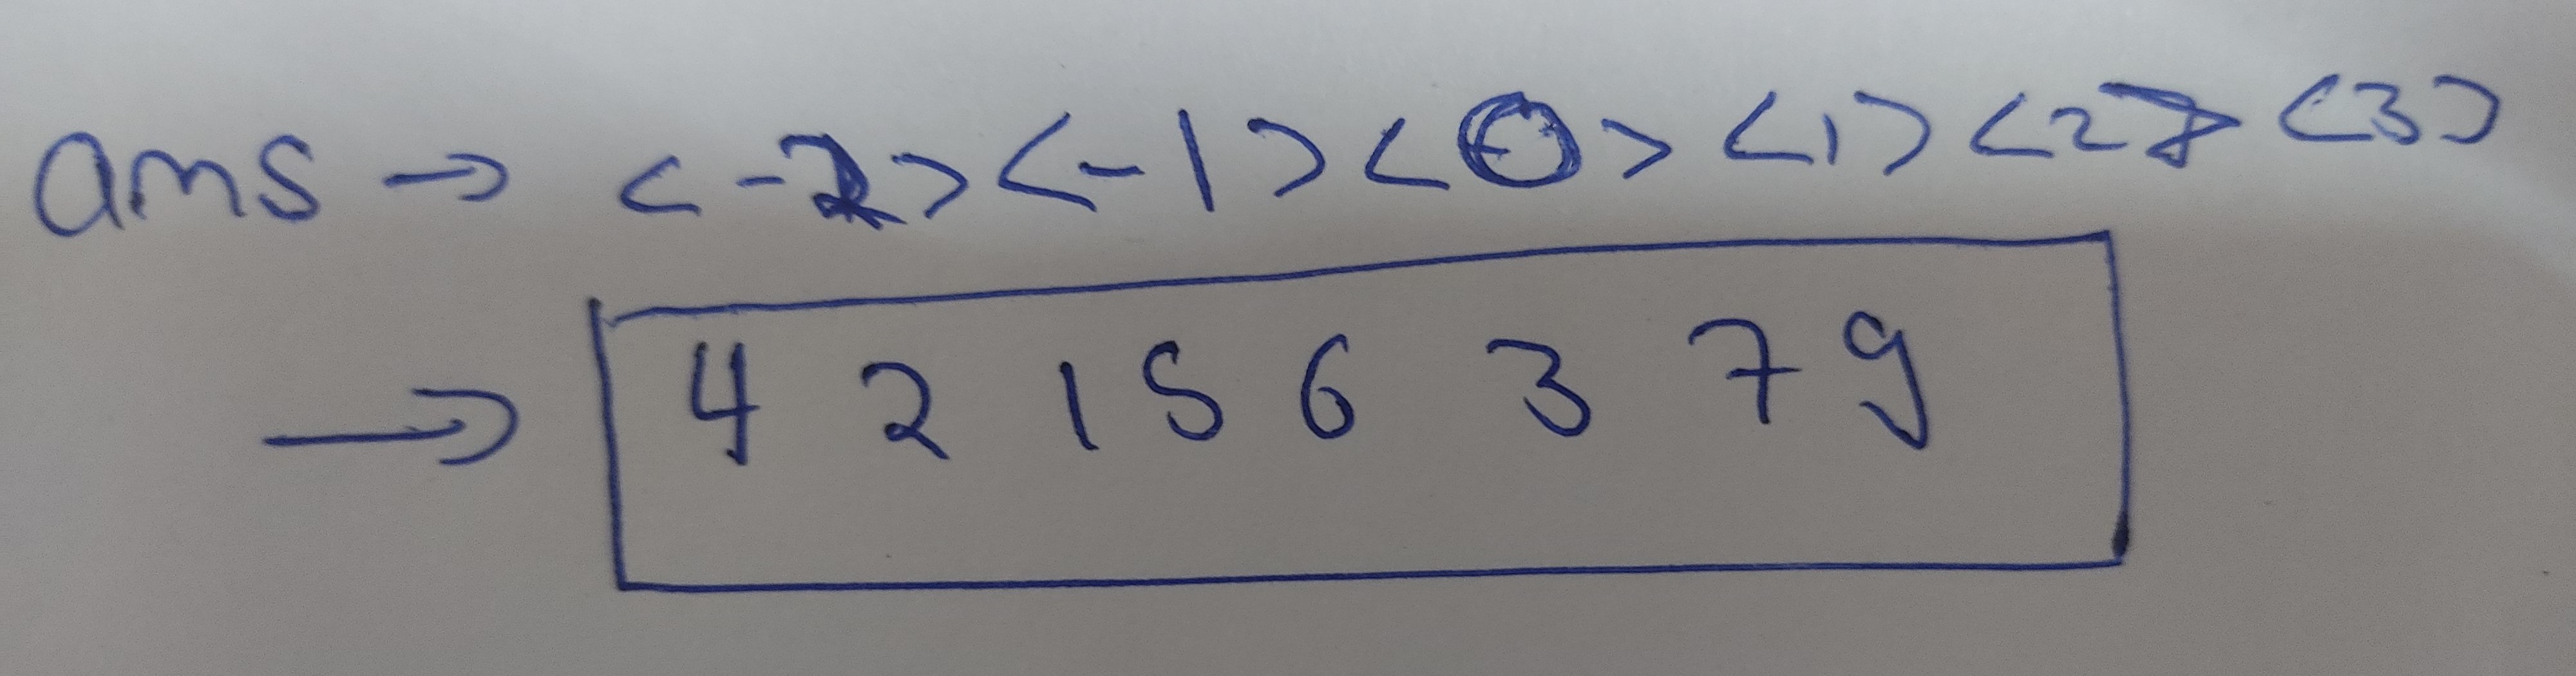 ans → <-2> <-1> <0> <1> <2> <3>
→ 4 2 1 5 6 3 7 9